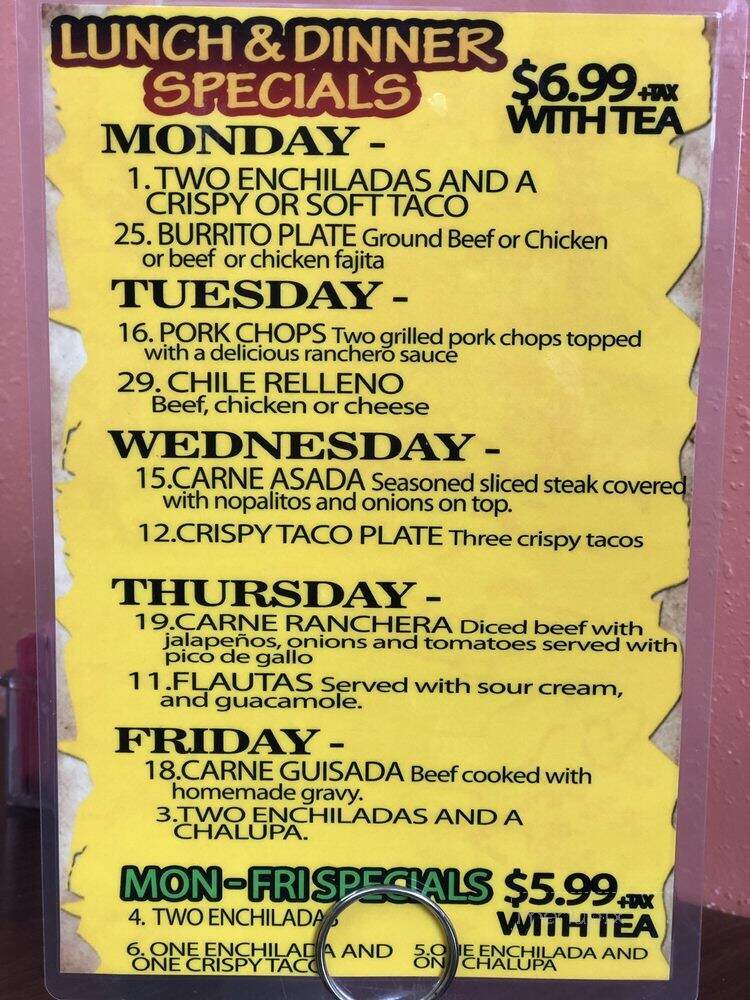 LUNCH & DINNER
SPECIALS
$6.99 +TAX
WITH TEA
MONDAY -
1. TWO ENCHILADAS AND A
CRISPY OR SOFT TACO
25. BURRITO PLATE Ground Beef or Chicken
or beef or chicken fajita
TUESDAY -
16. PORK CHOPS Two grilled pork chops topped
with a delicious ranchero sauce
29. CHILE RELLENO
Beef, chicken or cheese
WEDNESDAY -
15.CARNE ASADA Seasoned sliced steak covered
with nopalitos and onions on top.
12.CRISPY TACO PLATE Three crispy tacos
THURSDAY -
19.CARNE RANCHERA Diced beef with
jalapeños, onions and tomatoes served with
pico de gallo
11.FLAUTAS Served with sour cream,
and guacamole.
FRIDAY -
18.CARNE GUISADA Beef cooked with
homemade gravy.
3.TWO ENCHILADAS AND A
CHALUPA.
MON-FRI SPECIALS
$5.99 +TAX
WITH TEA
4. TWO ENCHILADAS
6. ONE ENCHILADA AND
ONE CRISPY TACO
5.ONE ENCHILADA AND
ONE CHALUPA